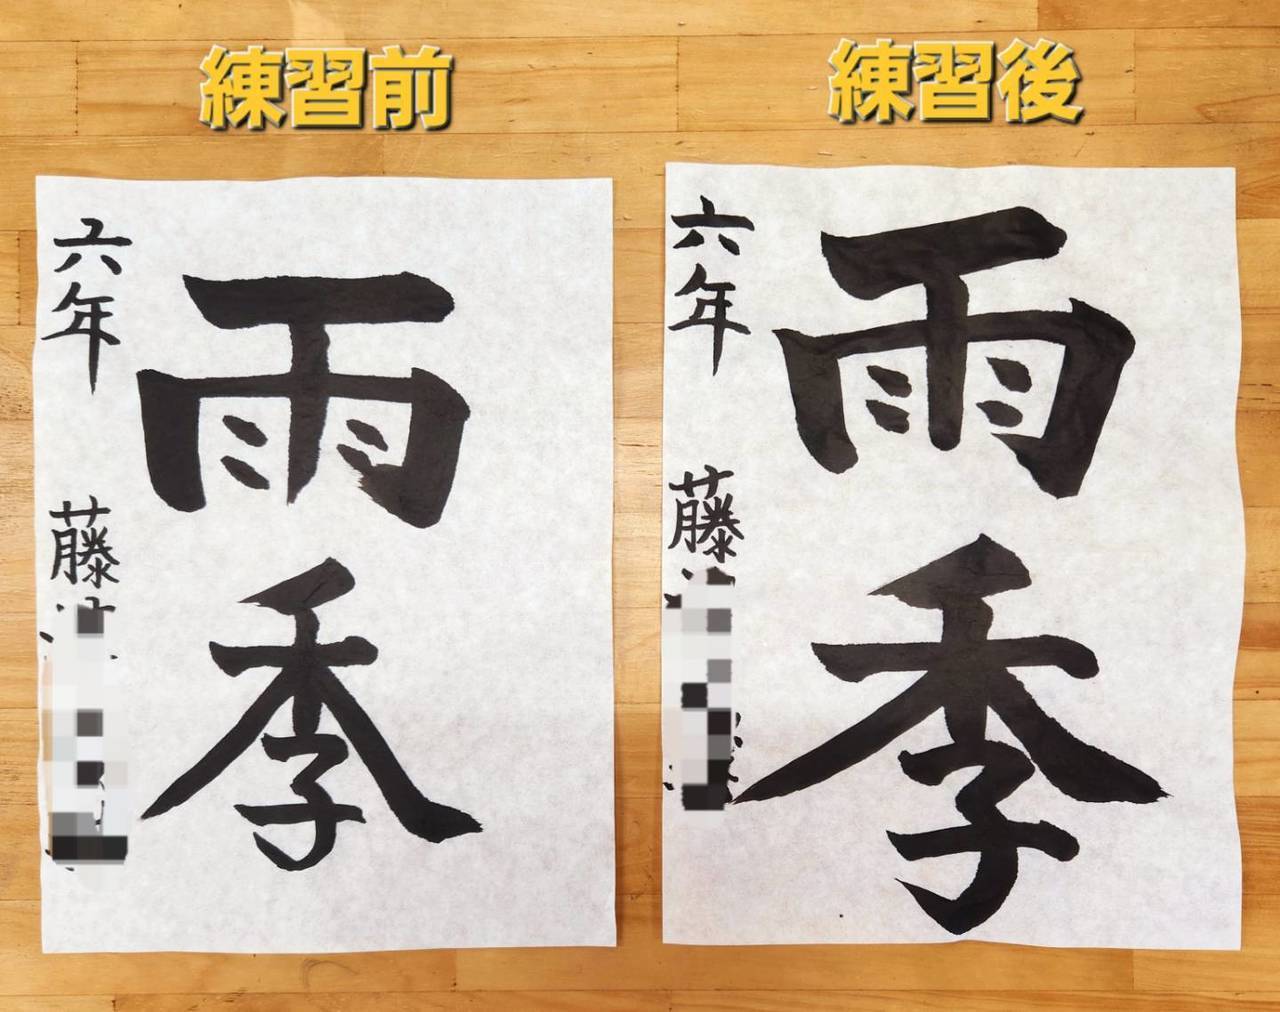 練習前
雨季
六年 藤
練習後
雨季
六年 藤